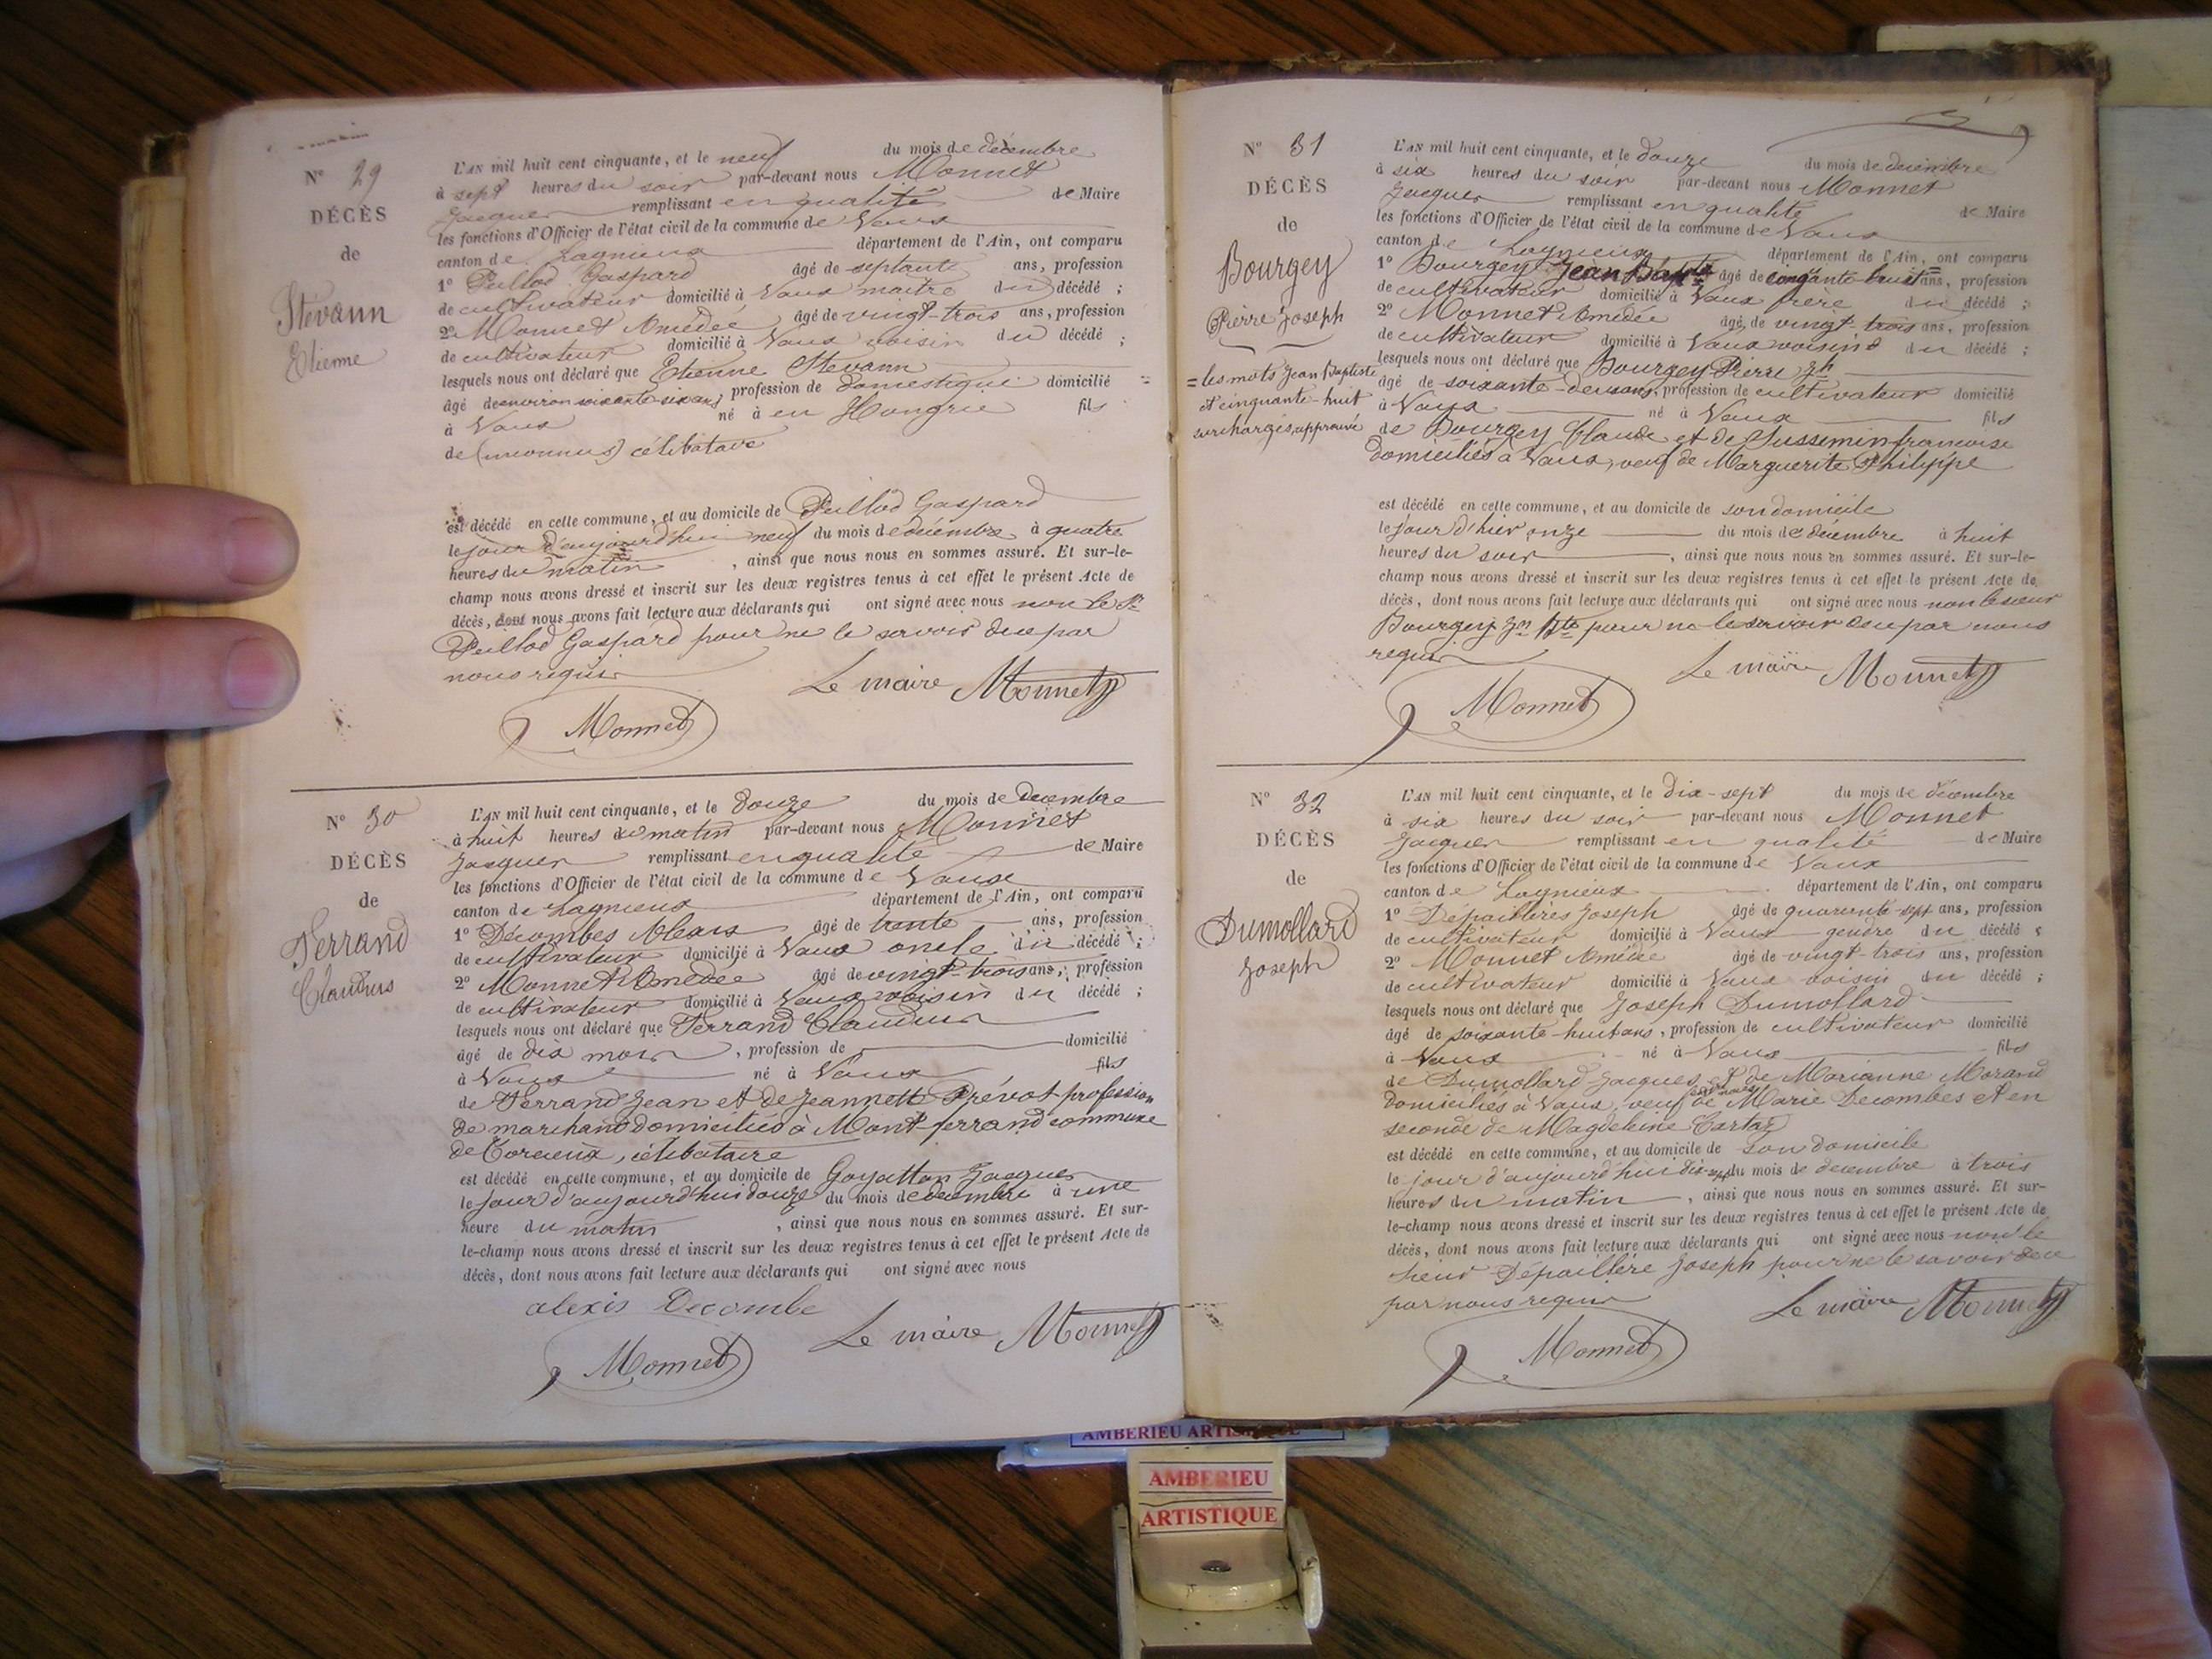 N° 29
DÉCÈS
de
Stevann
Etienne
L'AN mil huit cent cinquante, et le neuf du mois de décembre
à sept heures du soir par-devant nous Monnet
Jacques remplissant en qualité de Maire
les fonctions d'Officier de l'état civil de la commune de Vaux
canton de Lagnieux département de l'Ain, ont comparu
1° Peillod Gaspard âgé de septante ans, profession
de cultivateur domicilié à Vaux maitre du décédé ;
2° Monnet Amédée âgé de vingt-trois ans, profession
de cultivateur domicilié à Vaux voisin du décédé ;
lesquels nous ont déclaré que Etienne Stevann
âgé de environ soixante-six ans, profession de domestique domicilié =
à Vaux né à en Hongrie fils
de (inconnus) célibatave
est décédé en cette commune, et au domicile de Peillod Gaspard
le jour d'aujourd'hui neuf du mois de décembre à quatre
heures du matin , ainsi que nous nous en sommes assuré. Et sur-le-
champ nous avons dressé et inscrit sur les deux registres tenus à cet effet le présent Acte de
décès, dont nous avons fait lecture aux déclarants qui ont signé avec nous non le Sr
Peillod Gaspard pour ne le savoir dece par
nous requis
Le maire Monnet
Monnet
N° 30
DÉCÈS
de
Ferrand
Claudius
L'AN mil huit cent cinquante, et le douze du mois de Décembre
à huit heures du matin par-devant nous Monnet
Jacques remplissant en qualité de Maire
les fonctions d'Officier de l'état civil de la commune de Vaux
canton de Lagnieux département de l'Ain, ont comparu
1° Décombes Alexis âgé de trente ans, profession
de cultivateur domicilié à Vaux oncle du décédé ;
2° Monnet Amédée âgé de vingt-trois ans, profession
de cultivateur domicilié à Vaux voisin du décédé ;
lesquels nous ont déclaré que Ferrand Claudius
âgé de dix mois , profession de domicilié
à Vaux né à Vaux fils
de Ferrand Jean et de Jeannette Prévot profession
de marchand domiciliés à Mont-ferrand commune
de Corcieux, célibataire
est décédé en cette commune, et au domicile de Goyatton Jacques
le jour d'aujourd'hui douze du mois de décembre à une
heure du matin , ainsi que nous nous en sommes assuré. Et sur-
le-champ nous avons dressé et inscrit sur les deux registres tenus à cet effet le présent Acte de
décès, dont nous avons fait lecture aux déclarants qui ont signé avec nous
alexis Decombe
Le maire Monnet
Monnet
N° 31
DÉCÈS
de
Bourgey
Pierre Joseph
= les mots Jean Baptiste
et cinquante-huit
surchargés, approuvé
L'AN mil huit cent cinquante, et le douze du mois de décembre
à six heures du soir par-devant nous Monnet
Jacques remplissant en qualité de Maire
les fonctions d'Officier de l'état civil de la commune de Vaux
canton de Lagnieux département de l'Ain, ont comparu
1° Bourgey Jean Bapte âgé de cinquante-huit ans, profession
de cultivateur domicilié à Vaux frère du décédé ;
2° Monnet Amédée âgé de vingt-trois ans, profession
de cultivateur domicilié à Vaux voisin du décédé ;
lesquels nous ont déclaré que Bourgey Pierre Jh
âgé de soixante-deux ans, profession de cultivateur domicilié
à Vaux né à Vaux fils
de Bourgey Claude et de Jussemin francoise
domiciliés à Vaux, veuf de Marguerite Philippe
est décédé en cette commune, et au domicile de son domicile
le jour d'hier onze du mois de décembre à huit
heures du soir , ainsi que nous nous en sommes assuré. Et sur-le-
champ nous avons dressé et inscrit sur les deux registres tenus à cet effet le présent Acte de
décès, dont nous avons fait lecture aux déclarants qui ont signé avec nous non le sieur
Bourgey Jn Bte pour ne le savoir dece par nous
requis
Le maire Monnet
Monnet
N° 32
DÉCÈS
de
Dumollard
Joseph
L'AN mil huit cent cinquante, et le dix-sept du mois de décembre
à six heures du soir par-devant nous Monnet
Jacques remplissant en qualité de Maire
les fonctions d'Officier de l'état civil de la commune de Vaux
canton de Lagnieux département de l'Ain, ont comparu
1° Dépaillères Joseph âgé de quarante-sept ans, profession
de cultivateur domicilié à Vaux gendre du décédé ;
2° Monnet Amédée âgé de vingt-trois ans, profession
de cultivateur domicilié à Vaux voisin du décédé ;
lesquels nous ont déclaré que Joseph Dumollard
âgé de soixante-huit ans, profession de cultivateur domicilié
à Vaux né à Vaux fils
de Dumollard Jacques et de Marianne Morand
domiciliés à Vaux, veuf de Marie Decombes et en
seconde de Magdeleine Cartaz
est décédé en cette commune, et au domicile de son domicile
le jour d'aujourd'hui dix-sept du mois de décembre à trois
heures du matin , ainsi que nous nous en sommes assuré. Et sur-
le-champ nous avons dressé et inscrit sur les deux registres tenus à cet effet le présent Acte de
décès, dont nous avons fait lecture aux déclarants qui ont signé avec nous non le
sieur Dépaillère Joseph pour ne le savoir dece
par nous requis
Le maire Monnet
Monnet
AMBERIEU ARTISTIQUE
AMBERIEU
ARTISTIQUE